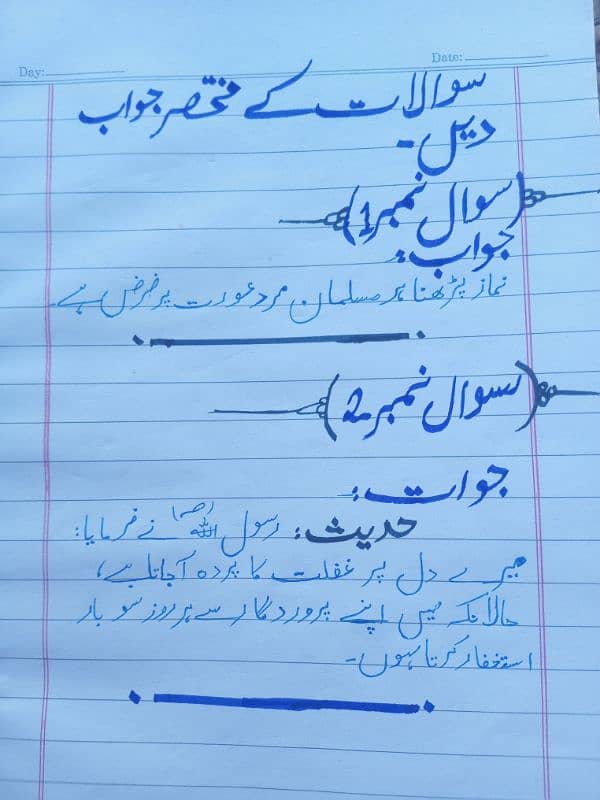 Day:
Date:
سوالات کے مختصر جواب
دیں۔
(سوال نمبر 1)
جواب:
نماز پڑھنا ہر مسلمان مرد عورت پر فرض ہے۔
(سوال نمبر 2)
جوات:
حدیث: رسول اللہ ﷺ نے فرمایا:
میرے دل پر غفلت کا پردہ آجاتا ہے،
حالانکہ میں اپنے پروردگار سے ہر روز سو بار
استغفار کرتا ہوں۔